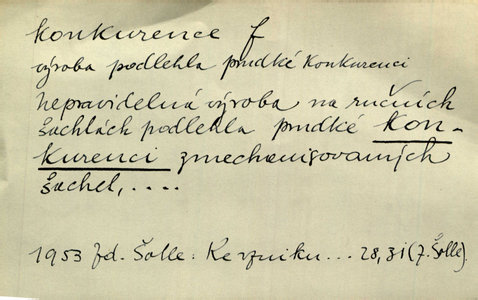 konkurence f
výroba podlehla prudké konkurenci
Nepravidelná výroba na ručních
šachtách podlehla prudké kon-
kurenci zmechanisovaných
šachet, ....
1953 Šolle: K ... 28, 31 (J. Šolle)